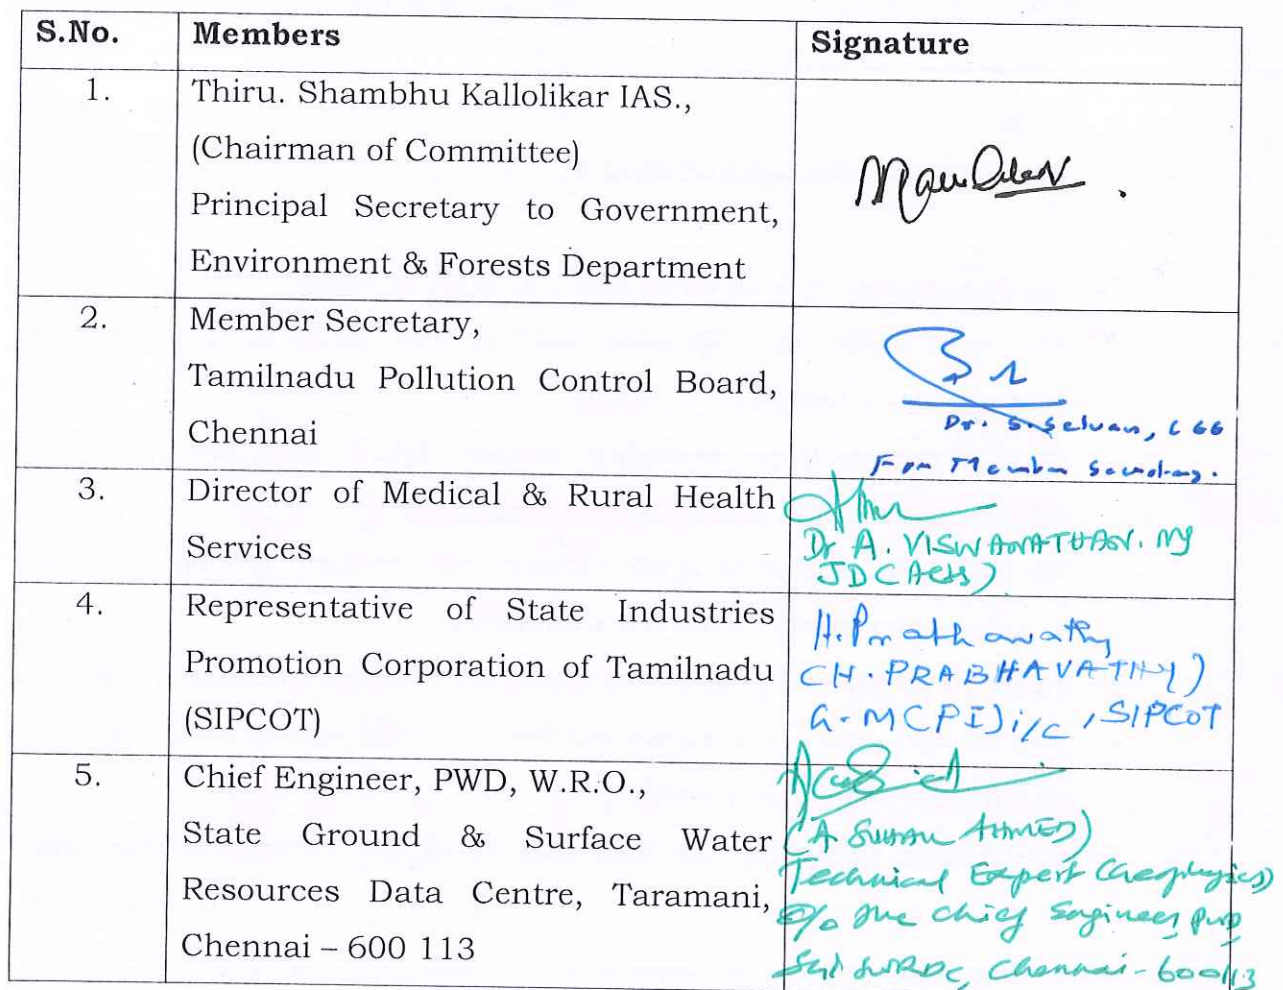 S.No. Members Signature
1. Thiru. Shambhu Kallolikar IAS.,
(Chairman of Committee)
Principal Secretary to Government,
Environment & Forests Department
2. Member Secretary,
Tamilnadu Pollution Control Board,
Chennai
Dr. S. Selvan,
For Member Secretary.
3. Director of Medical & Rural Health
Services
Dr A. VISWANATHAN.
4. Representative of State Industries
Promotion Corporation of Tamilnadu
(SIPCOT)
H. Prabhavathy
(H. PRABHAVATHY)
G.M(PI)i/c, SIPCOT
5. Chief Engineer, PWD, W.R.O.,
State Ground & Surface Water
Resources Data Centre, Taramani,
Chennai – 600 113
AHMED)
Technical Expert (Geophysics)
O/o the Chief Engineer, PWD,
Chennai-600113